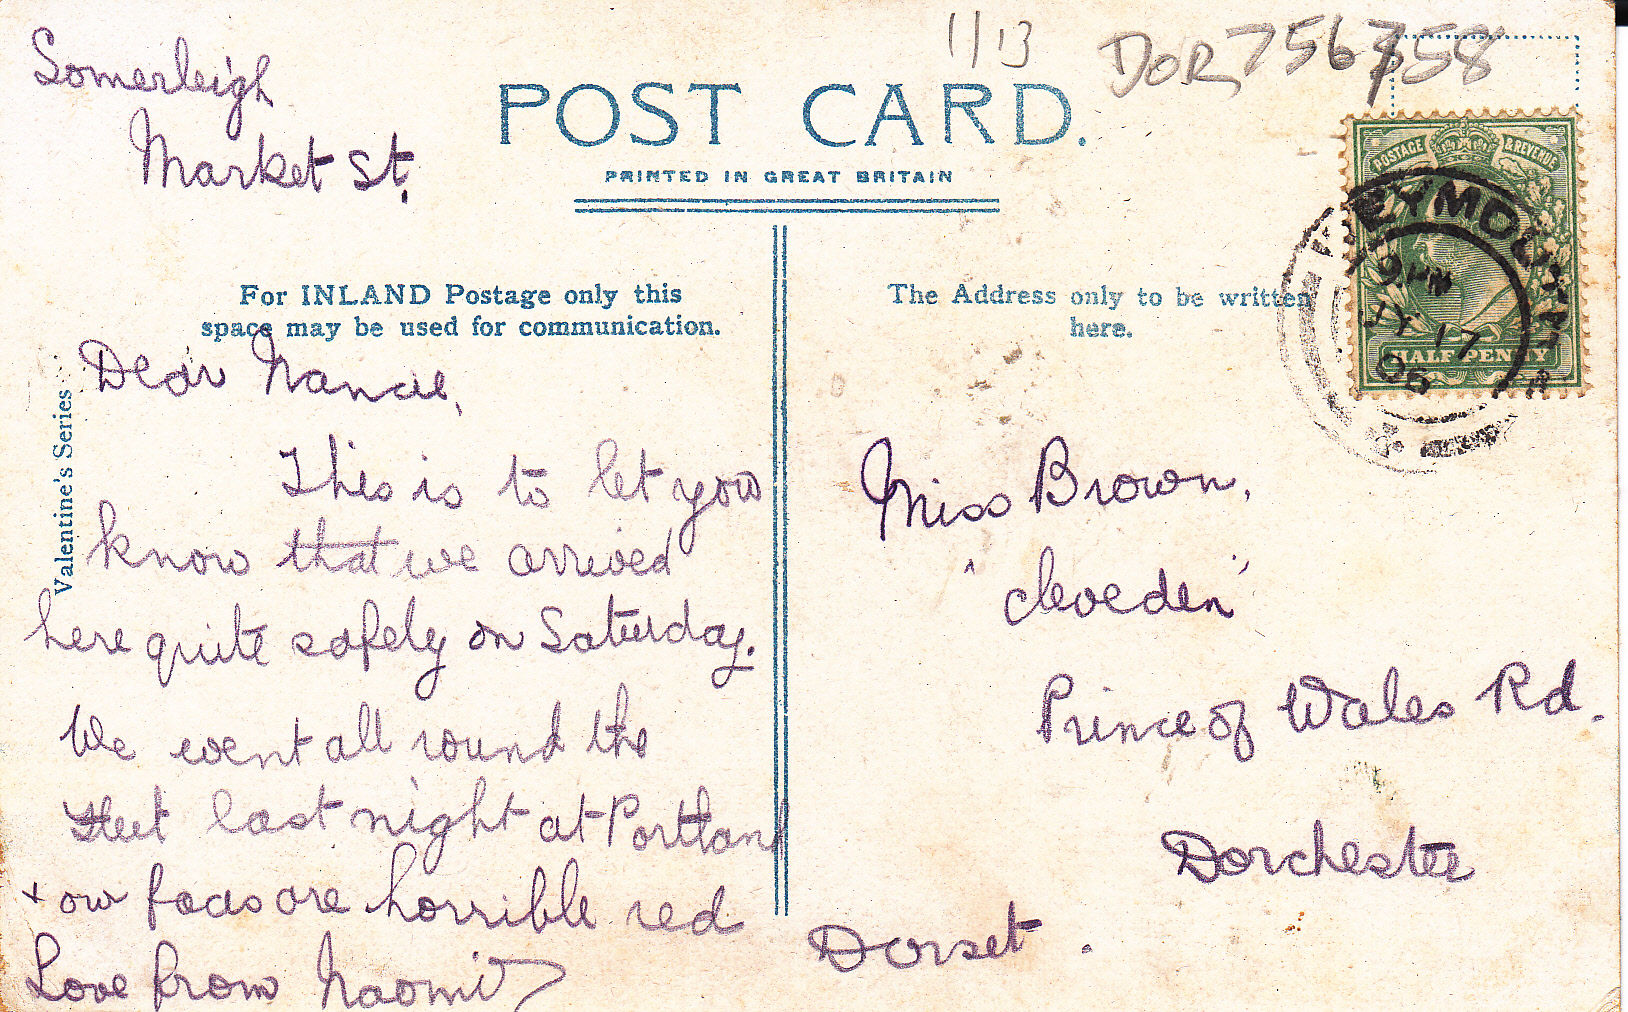 11/13
DOR 756758
Somerleigh
Market St.
POST CARD.
PRINTED IN GREAT BRITAIN
POSTAGE & REVENUE
HALF PENNY
WEYMOUTH
9 PM
JY 17
06
For INLAND Postage only this
space may be used for communication.
The Address only to be written
here.
Valentine's Series
Dear Nancie,
This is to let you
know that we arrived
here quite safely on Saturday.
We went all round the
fleet last night at Portland
+ our faces are horrible red
Love from Naomi
Miss Brown,
'Cleveden'
Prince of Wales Rd.
Dorchester
Dorset.